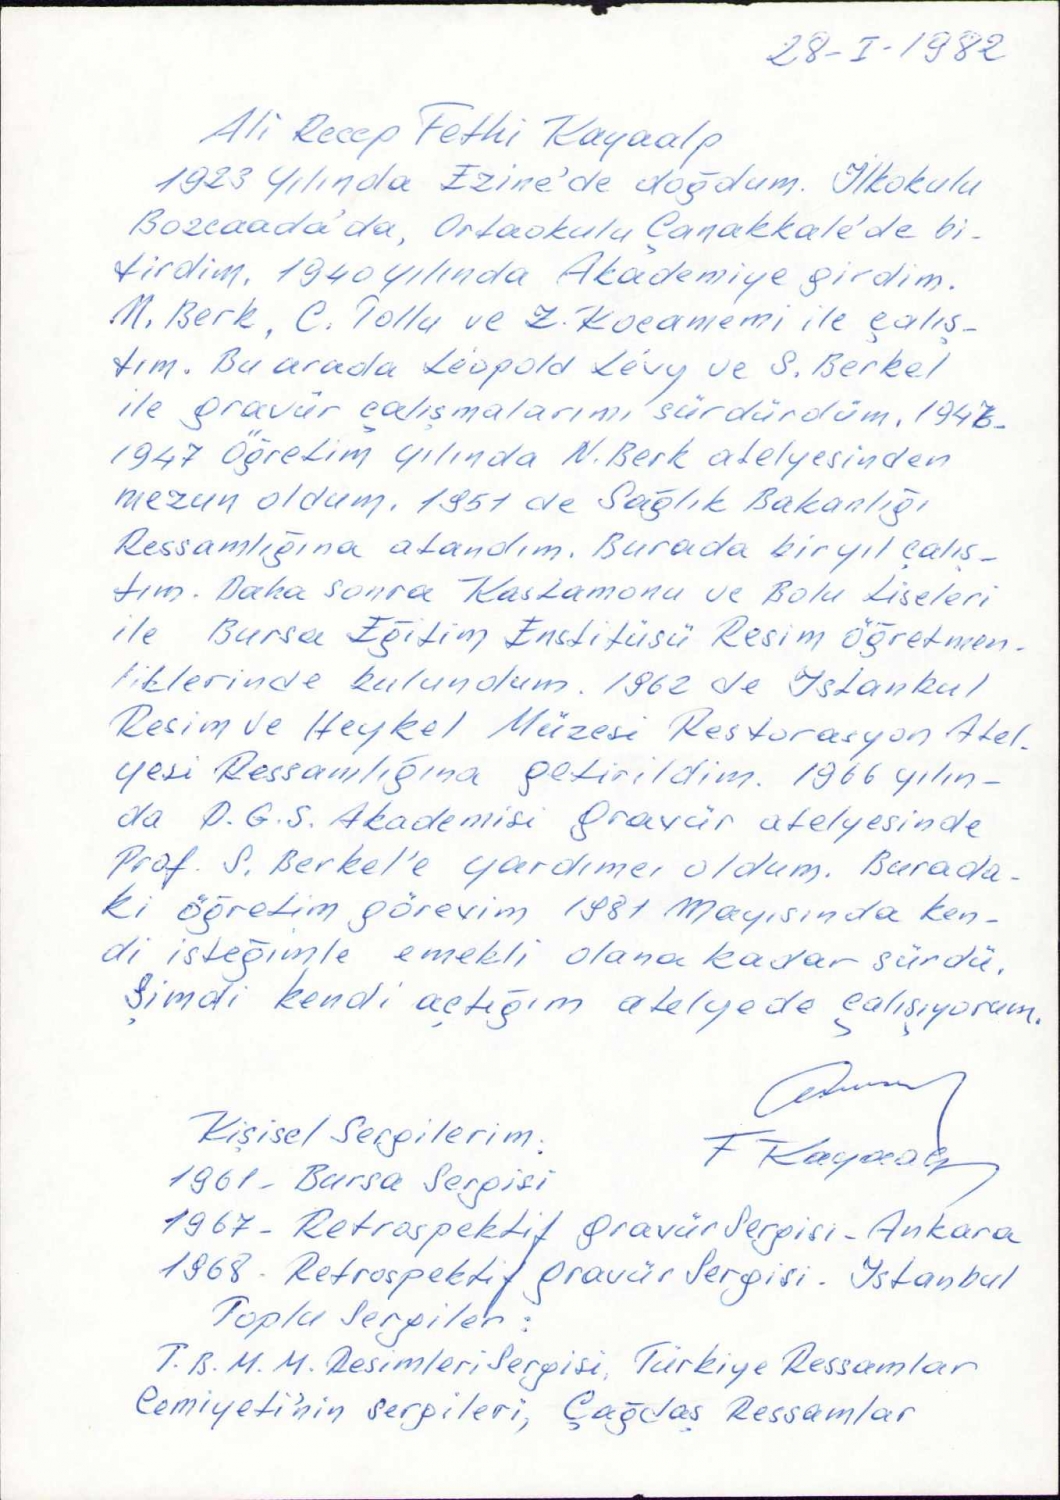 28-I-1982
Ali Recep Fethi Kayaalp
1923 yılında Ezine'de doğdum. İlkokulu
Bozcaada'da, Ortaokulu Çanakkale'de bi-
tirdim. 1940 yılında Akademiye girdim.
N. Berk, C. Tollu ve Z. Kocamemi ile çalış-
tım. Bu arada Léopold Lévy ve S. Berkel
ile gravür çalışmalarımı sürdürdüm. 1946-
1947 Öğretim yılında N. Berk atelyesinden
mezun oldum. 1951 de Sağlık Bakanlığı
Ressamlığına atandım. Burada bir yıl çalış-
tım. Daha sonra Kastamonu ve Bolu Liseleri
ile Bursa Eğitim Enstitüsü Resim öğretmen-
liklerinde bulundum. 1962 de İstanbul
Resim ve Heykel Müzesi Restorasyon Atel-
yesi Ressamlığına getirildim. 1966 yılın-
da D.G.S. Akademisi gravür atelyesinde
Prof. S. Berkel'e yardımcı oldum. Burada-
ki öğretim görevim 1981 Mayısında ken-
di isteğimle emekli olana kadar sürdü.
Şimdi kendi açtığım atelyede çalışıyorum.
F Kayaalp
Kişisel Sergilerim.
1961- Bursa Sergisi
1967- Retrospektif gravür Sergisi- Ankara
1968- Retrospektif gravür Sergisi- İstanbul
Toplu Sergiler:
T.B.M.M. Resimleri Sergisi, Türkiye Ressamlar
Cemiyeti'nin sergileri, Çağdaş Ressamlar